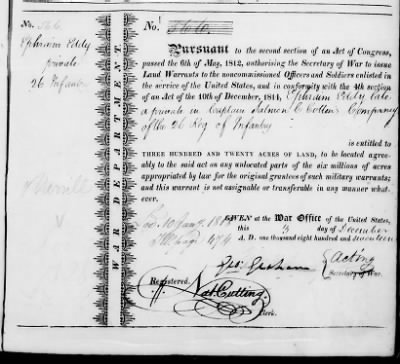 No. 566.
Ephraim Eddy
private
26 Infantry
WAR DEPARTMENT
No. 566.
Pursuant to the second section of an Act of Congress,
passed the 6th of May, 1812, authorising the Secretary of War to issue
Land Warrants to the noncommissioned Officers and Soldiers enlisted in
the service of the United States, and in conformity with the 4th section
of an Act of the 10th of December, 1814, Ephraim Eddy late
a private in Captain Salmon C Cotten's Company
of the 26 Reg of Infantry
is entitled to
THREE HUNDRED AND TWENTY ACRES OF LAND, to be located agree-
ably to the said act on any unlocated parts of the six millions of acres
appropriated by law for the original grantees of such military warrants;
and this warrant is not assignable or transferable in any manner what-
ever.
GIVEN at the War Office of the United States,
this 3 day of December
A. D. one thousand eight hundred and seventeen
Geo: Graham
Acting
Secretary of War.
Registered.
Nat. Cutting.
Clerk.